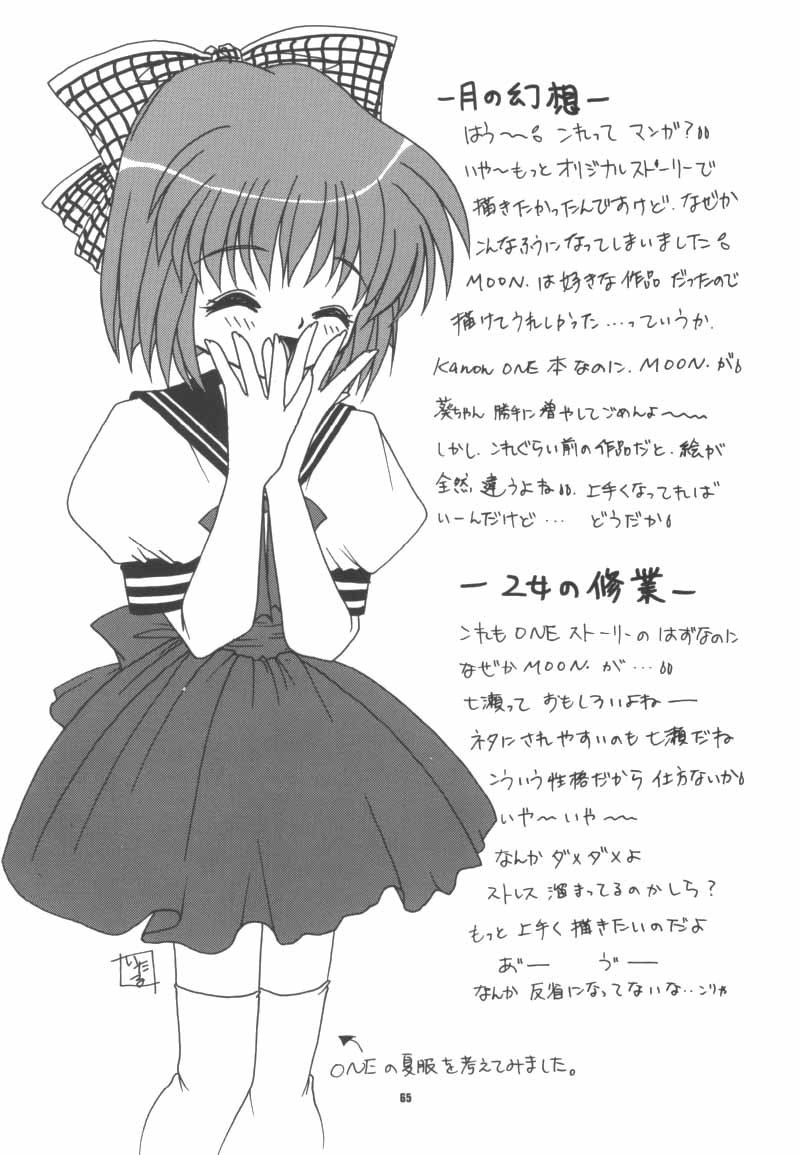 －月の幻想－
はう〜〜。これって マンガ？
いや〜もっと オリジナルストーリーで
描きたかったんですけど、なぜか
こんなふうになってしまいました。
MOON. は好きな作品 だったので
描けてうれしかった…っていうか、
Kanon ONE 本 なのに、MOON. が
葵ちゃん 勝手に増やしてごめんよ〜〜
しかし、これぐらい前の作品だと、絵が
全然 違うよね。上手くなってれば
いーんだけど… どうだか
－ 乙女の修業 －
これも ONE ストーリーの はずなのに
なぜか MOON. が…
七瀬って おもしろいよね－
ネタにされやすいのも 七瀬だね
こういう性格だから 仕方ないか
いや〜 いや〜
なんか ダメダメよ
ストレス 溜まってるのかしら？
もっと 上手く 描きたいのだよ
あ゛－ う゛－
なんか 反省になってないな‥こりゃ
いたる
ONEの夏服を考えてみました。
65